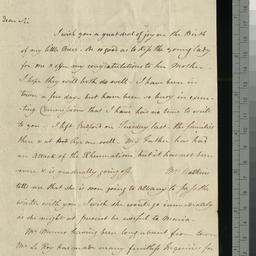 Dear Sir
I wish you a great deal of joy on the Birth
of my little Niece. Be so good as to kiss the young lady
for me & offer my congratulations to her Mother.
I hope they will both do well. I have been in
town a few days but have been so busy in execu-
ting Commissions that I have had no time to write
to you. I left Bedford on Tuesday last. the families
there & at are well. My Father has had
an attack of the Rheumatism but it has not been
severe & is gradually going off. Mrs
tells me that she is soon going to Albany to pass the
winter with you. I wish she would go immediately
as she might at present be useful to Maria.
Mr Munro having been long absent from town
Mr Le Roy has made many fruitless Enquiries for